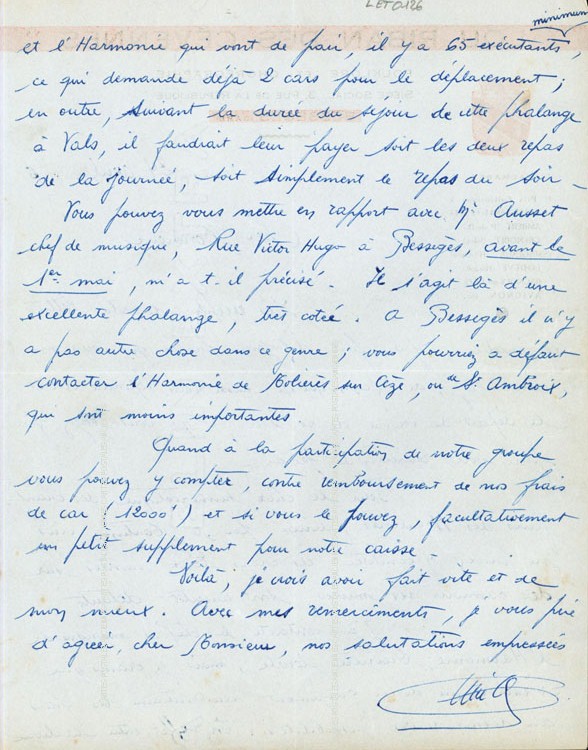 LET0126
minimum
et l'Harmonie qui vont de pair, il y a 65 exécutants,
ce qui demande déjà 2 cars pour le déplacement ;
en outre, suivant la durée du séjour de cette phalange
à Vals, il faudrait leur payer soit les deux repas
de la journée, soit simplement le repas du soir -
Vous pouvez vous mettre en rapport avec Mr Ausset
chef de musique, Rue Victor Hugo à Bessèges, avant le
1er mai, m'a t-il précisé. Il s'agit là d'une
excellente phalange, très cotée. A Bessèges il n'y
a pas autre chose dans ce genre ; vous pourriez à défaut
contacter l'Harmonie de Molières sur Cèze, ou de St Ambroix,
qui sont moins importantes
Quand à la participation de notre groupe
vous pouvez y compter, contre remboursement de nos frais
de car (12000f) et si vous le pouvez, facultativement
un petit supplément pour notre caisse -
Voilà ; je crois avoir fait vite et de
mon mieux. Avec mes remerciments, je vous prie
d'agréer, cher Monsieur, nos salutations empressées